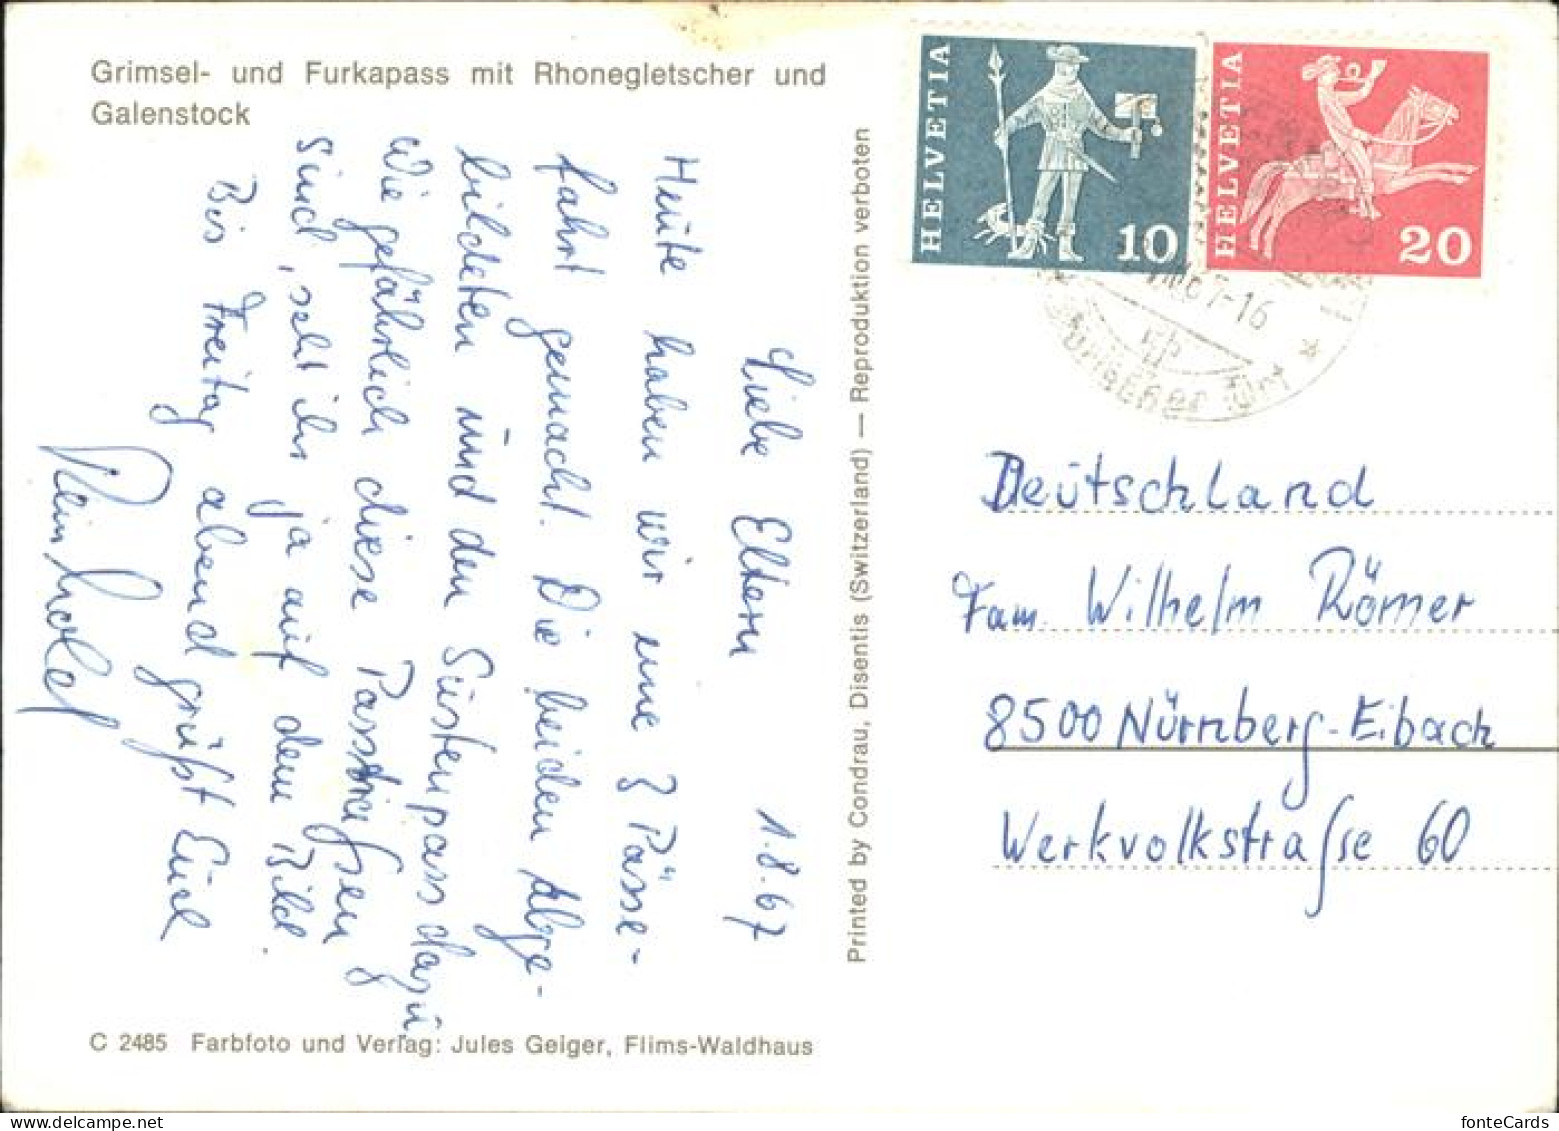 Grimsel- und Furkapass mit Rhonegletscher und
Galenstock
Liebe Eltern 1.8.67
Heute haben wir eine 3 Pässe-
fahrt gemacht. Die beiden Abge-
bildeten und den Süstenpass dazu
Wie gefährlich diese Passstraßen
sind, seht ihr ja auf dem Bild.
Bis Freitag abend grüßt Euch
C 2485 Farbfoto und Verlag: Jules Geiger, Flims-Waldhaus
Printed by Condrau, Disentis (Switzerland) — Reproduktion verboten
HELVETIA
10
HELVETIA
20
67-16
Deutschland
Fam. Wilhelm Römer
8500 Nürnberg-Eibach
Werkvolkstrasse 60
fonteCards